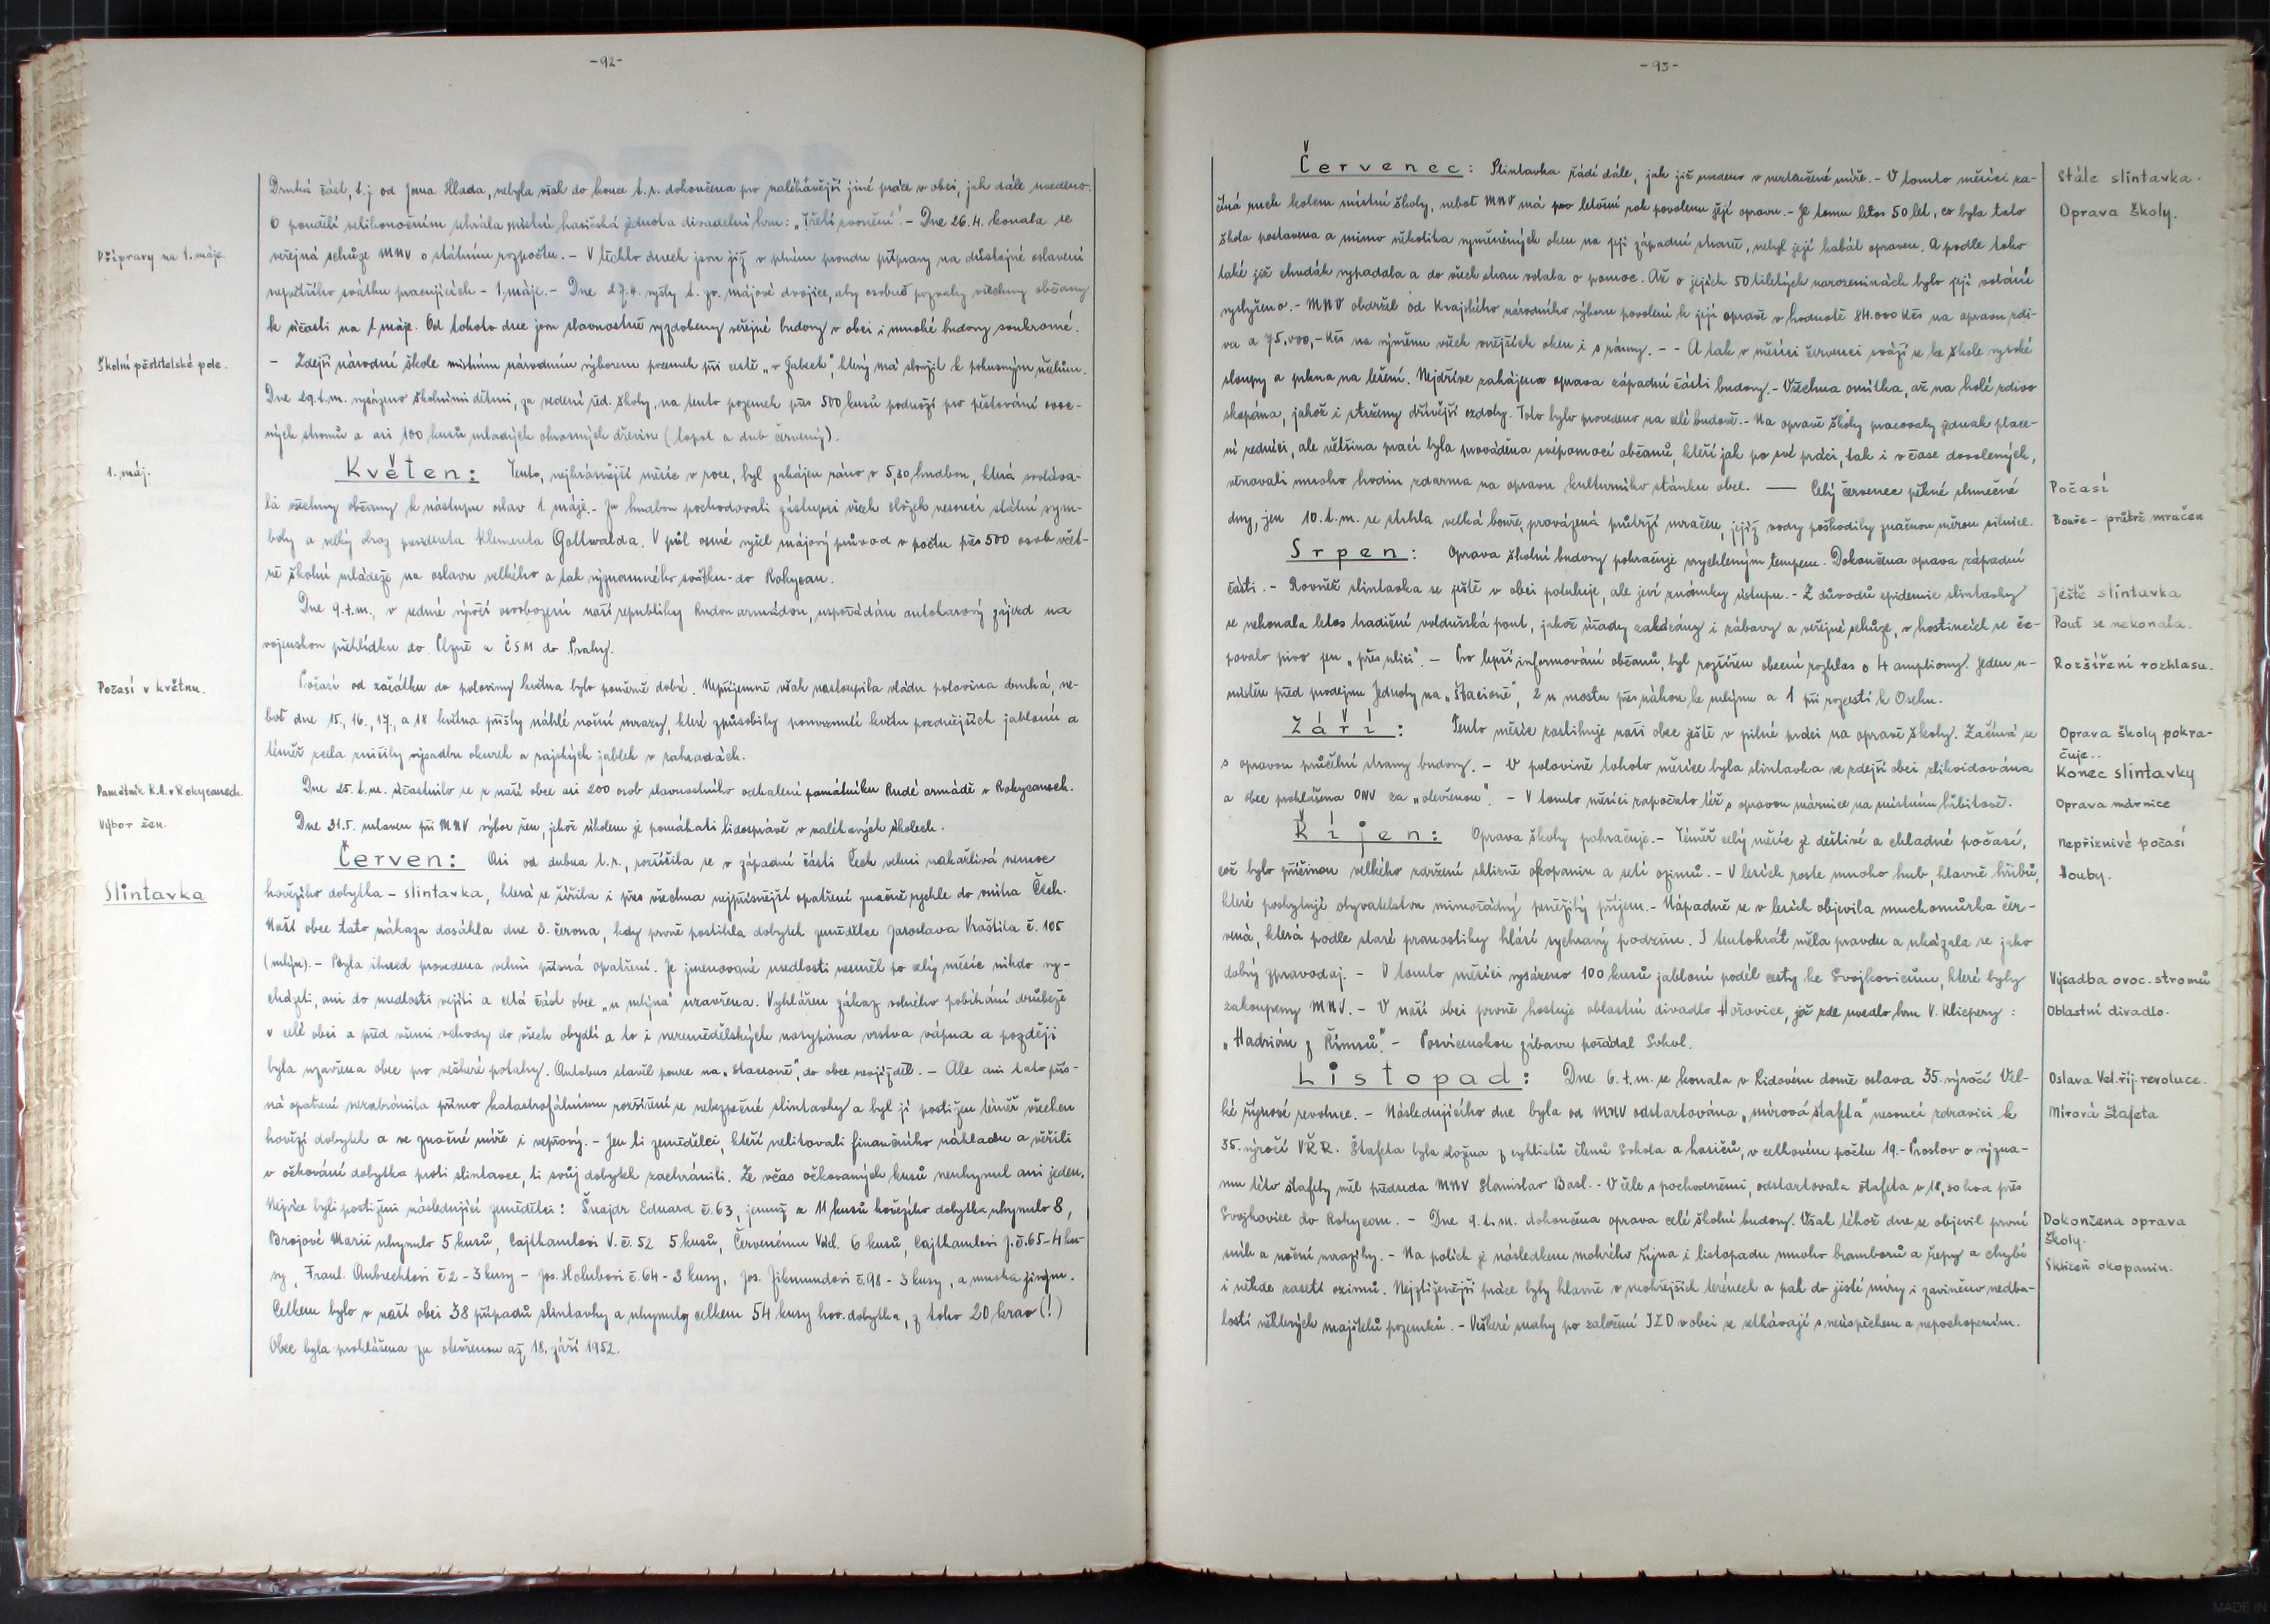 -92-
Druhá část, t.j. od Jana Hlada, nebyla však do konce t.r. dokončena pro naléhavější jiné práce v obci, jak dále uvedeno.
O pondělí velikonočním sehrála místní hasičská jednota divadelní hru: „Třetí zvonění". - Dne 26.4. konala se
Přípravy na 1. máje.
veřejná schůze MNV o státním rozpočtu. - V těchto dnech jsou již v plném proudu přípravy na důstojné oslavení
největšího svátku pracujících - 1. máje. - Dne 27.4. vyšly t. zv. májové dvojice, aby osobně pozvaly všechny občany
k účasti na 1. máje. Od tohoto dne jsou slavnostně vyzdobeny veřejné budovy v obci i mnohé budovy soukromé.
Školní pěstitelské pole.
- Zdejší národní škole místním národním výborem pozemek při cestě „v Žabech", který má sloužit k pokusným účelům.
Dne 29.t.m. vysázeno školními dětmi, za vedení řed. školy, na tento pozemek přes 500 kusů podnoží pro pěstování ovoc-
ných stromů a asi 100 kusů mladých okrasných dřevin (topol a dub červený).
1. máj.
Květen: Tento, nejkrásnější měsíc v roce, byl zahájen ráno v 5,30 hudbou, která svoláva-
la všechny občany k nástupu oslav 1. máje. - Za hudbou pochodovali zástupci všech složek nesoucí státní sym-
boly a velký obraz presidenta Klementa Gottwalda. V půl osmé vyšel májový průvod v počtu přes 500 osob včet-
ně školní mládeže na oslavu velkého a tak významného svátku - do Rokycan.
Dne 9.t.m., v sedmé výročí osvobození naší republiky Rudou armádou, uspořádán autokarový zájezd na
vojenskou přehlídku do Plzně a ČSM do Prahy.
Počasí v květnu.
Počasí od začátku do poloviny května bylo poměrně dobré. Nepříjemně však nastoupila vládu polovina druhá, ne-
boť dne 15., 16., 17., a 18 května přišly náhlé noční mrazy, které způsobily pomrznutí květu pozdnějších jabloní a
téměř zcela zničily výsadbu okurek a rajských jablek v zahradách.
Památník R.A. v Rokycanech.
Dne 25. t.m. účastnilo se z naší obce asi 200 osob slavnostního odhalení památníku Rudé armádě v Rokycanech.
Výbor žen.
Dne 31.5. ustaven při MNV výbor žen, jehož úkolem je pomáhati lidosprávě v naléhavých úkolech.
Červen: Asi od dubna t.r., rozšířila se v západní části Čech velmi nakažlivá nemoc
Slintavka
hovězího dobytka - slintavka, která se šířila i přes všechna nejpřísnější opatření značně rychle do vnitra Čech.
Naší obce tato nákaza dosáhla dne 3. června, kdy prvně postihla dobytek zemědělce Jaroslava Vraštila č. 105
(mlýn). - Byla ihned provedena velmi přísná opatření. Ze jmenované usedlosti nesměl po celý měsíc nikdo vy-
cházeti, ani do usedlosti vejíti a celá část obce „u mlýna" uzavřena. Vyhlášen zákaz volného pobíhání drůbeže
v celé obci a před všemi vchody do všech obydlí a to i nezemědělských nasypána vrstva vápna a později
byla uzavřena obec pro veškeré potahy. Autobus stavěl pouze na „Stacioně", do obce nevjížděl. - Ale ani tato přís-
ná opatření nezabránila přímo katastrofálnímu rozšíření se nebezpečné slintavky a byl jí postižen téměř všechen
hovězí dobytek a ve značné míře i vepřový. - Jen ti zemědělci, kteří nelitovali finančního nákladu a věřili
v očkování dobytka proti slintavce, ti svůj dobytek zachránili. Ze včas očkovaných kusů neuhynul ani jeden.
Nejvíce byli postiženi následující zemědělci: Šnajdr Eduard č. 63, jemuž z 11 kusů hovězího dobytka uhynulo 8,
Brojové Marii uhynulo 5 kusů, Cajthamlovi V. č. 52 5 kusů, Červenému Václ. 6 kusů, Cajthamlovi J. č. 65 - 4 ku-
sy, Frant. Aubrechtovi č 2 - 3 kusy - Jos. Holubovi č. 64 - 3 kusy, Jos. Zikmundovi č. 98 - 3 kusy, a mnoha jiným.
Celkem bylo v naší obci 38 případů slintavky a uhynuly celkem 54 kusy hov. dobytka, z toho 20 krav (!)
Obec byla prohlášena za otevřenou až 18. září 1952.
-93-
Červenec: Slintavka řádí dále, jak již uvedeno v neztenčené míře. - V tomto měsíci za-
Stále slintavka.
číná ruch kolem místní školy, neboť MNV má pro letošní rok povolenu její opravu. - Je tomu letos 50 let, co byla tato
Oprava školy.
škola postavena a mimo několika vyměněných oken na její západní straně, nebyl její kabát opraven. A podle toho
také již chudák vypadala a do všech stran volala o pomoc. Až o jejích 50tiletých narozeninách bylo její volání
vyslyšeno. - MNV obdržel od Krajského národního výboru povolení k její opravě v hodnotě 84.000 Kčs na opravu zdi-
va a 75.000,- Kčs na výměnu všech vnějších oken i s rámy. - - A tak v měsíci červenci sváží se ke škole vysoké
sloupy a prkna na lešení. Nejdříve zahájena oprava západní části budovy. - Všechna omítka, až na holé zdivo
skopána, jakož i strženy dřívější ozdoby. Toto bylo provedeno na celé budově. - Na opravě školy pracovaly jednak place-
ní zedníci, ale většina prací byla prováděna svépomocí občanů, kteří jak po své práci, tak i v čase dovolených,
věnovali mnoho hodin zdarma na opravu kulturního stánku obce. — Celý červenec pěkné slunečné
Počasí
dny, jen 10.t.m. se strhla velká bouře, provázená průtrží mračen, jejíž vody poškodily značnou měrou silnice.
Bouře - průtrž mračen
Srpen: Oprava školní budovy pokračuje zrychleným tempem. Dokončena oprava západní
části. - Rovněž slintavka se ještě v obci potuluje, ale jeví známky ústupu. - Z důvodů epidemie slintavky
Ještě slintavka
se nekonala letos tradiční voldušská pouť, jakož úřady zakázány i zábavy a veřejné schůze, v hostincích se če-
Pouť se nekonala.
povalo pivo jen „přes ulici". - Pro lepší informování občanů, byl rozšířen obecní rozhlas o 4 ampliony. Jeden u-
Rozšíření rozhlasu.
místěn před prodejnu Jednoty na „Štacioně", 2 u mostu přes náhon ke mlýnu a 1 při rozcestí k Oseku.
Září: Tento měsíc zastihuje naši obec ještě v pilné práci na opravě školy. Začíná se
Oprava školy pokra-
čuje..
s opravou průčelní strany budovy. - V polovině tohoto měsíce byla slintavka ve zdejší obci zlikvidována
Konec slintavky
a obec prohlášena ONV za „otevřenou". - V tomto měsíci započato též s opravou márnice na místním hřbitově.
Oprava márnice
Říjen: Oprava školy pokračuje. - Téměř celý měsíc je deštivé a chladné počasí,
Nepříznivé počasí
což bylo příčinou velkého zdržení sklizně okopanin a setí ozimů. - V lesích roste mnoho hub, hlavně hřibů,
Houby.
které poskytují obyvatelstvu mimořádný peněžitý příjem. - Nápadně se v lesích objevila muchomůrka čer-
vená, která podle staré pranostiky hlásí sychravý podzim. I tentokrát měla pravdu a ukázala se jako
dobrý zpravodaj. - V tomto měsíci vysázeno 100 kusů jabloní podél cesty ke Svojkovicům, které byly
Výsadba ovoc. stromů
zakoupeny MNV. - V naší obci prvně hostuje oblastní divadlo Hořovice, jež zde uvedlo hru V. Klicpery:
Oblastní divadlo.
„Hadrián z Římsů". - Posvícenskou zábavu pořádal Sokol.
Listopad: Dne 6.t.m. se konala v Lidovém domě oslava 35. výročí Vel-
Oslava Vel. říj. revoluce.
ké říjnové revoluce. - Následujícího dne byla od MNV odstartována „mírová štafeta" nesoucí zdravici k
Mírová štafeta
35. výročí VŘR. Štafeta byla složena z cyklistů členů Sokola a hasičů, v celkovém počtu 19. - Proslov o význa-
mu této štafety měl předseda MNV Stanislav Basl. - V čele s pochodněmi, odstartovala štafeta v 18,30 hod přes
Svojkovice do Rokycan. - Dne 9.t.m. dokončena oprava celé školní budovy. Však téhož dne se objevil první
Dokončena oprava
školy.
sníh a noční mrazíky. - Na polích je následkem mokrého října i listopadu mnoho bramborů a řepy a chybí
Sklizeň okopanin.
i někde zasetí ozimů. Nejztíženější práce byly hlavně v mokřejších terénech a pak do jisté míry i zaviněno nedba-
lostí některých majitelů pozemků. - Veškeré snahy po založení JZD v obci se setkávají s neúspěchem a nepochopením.